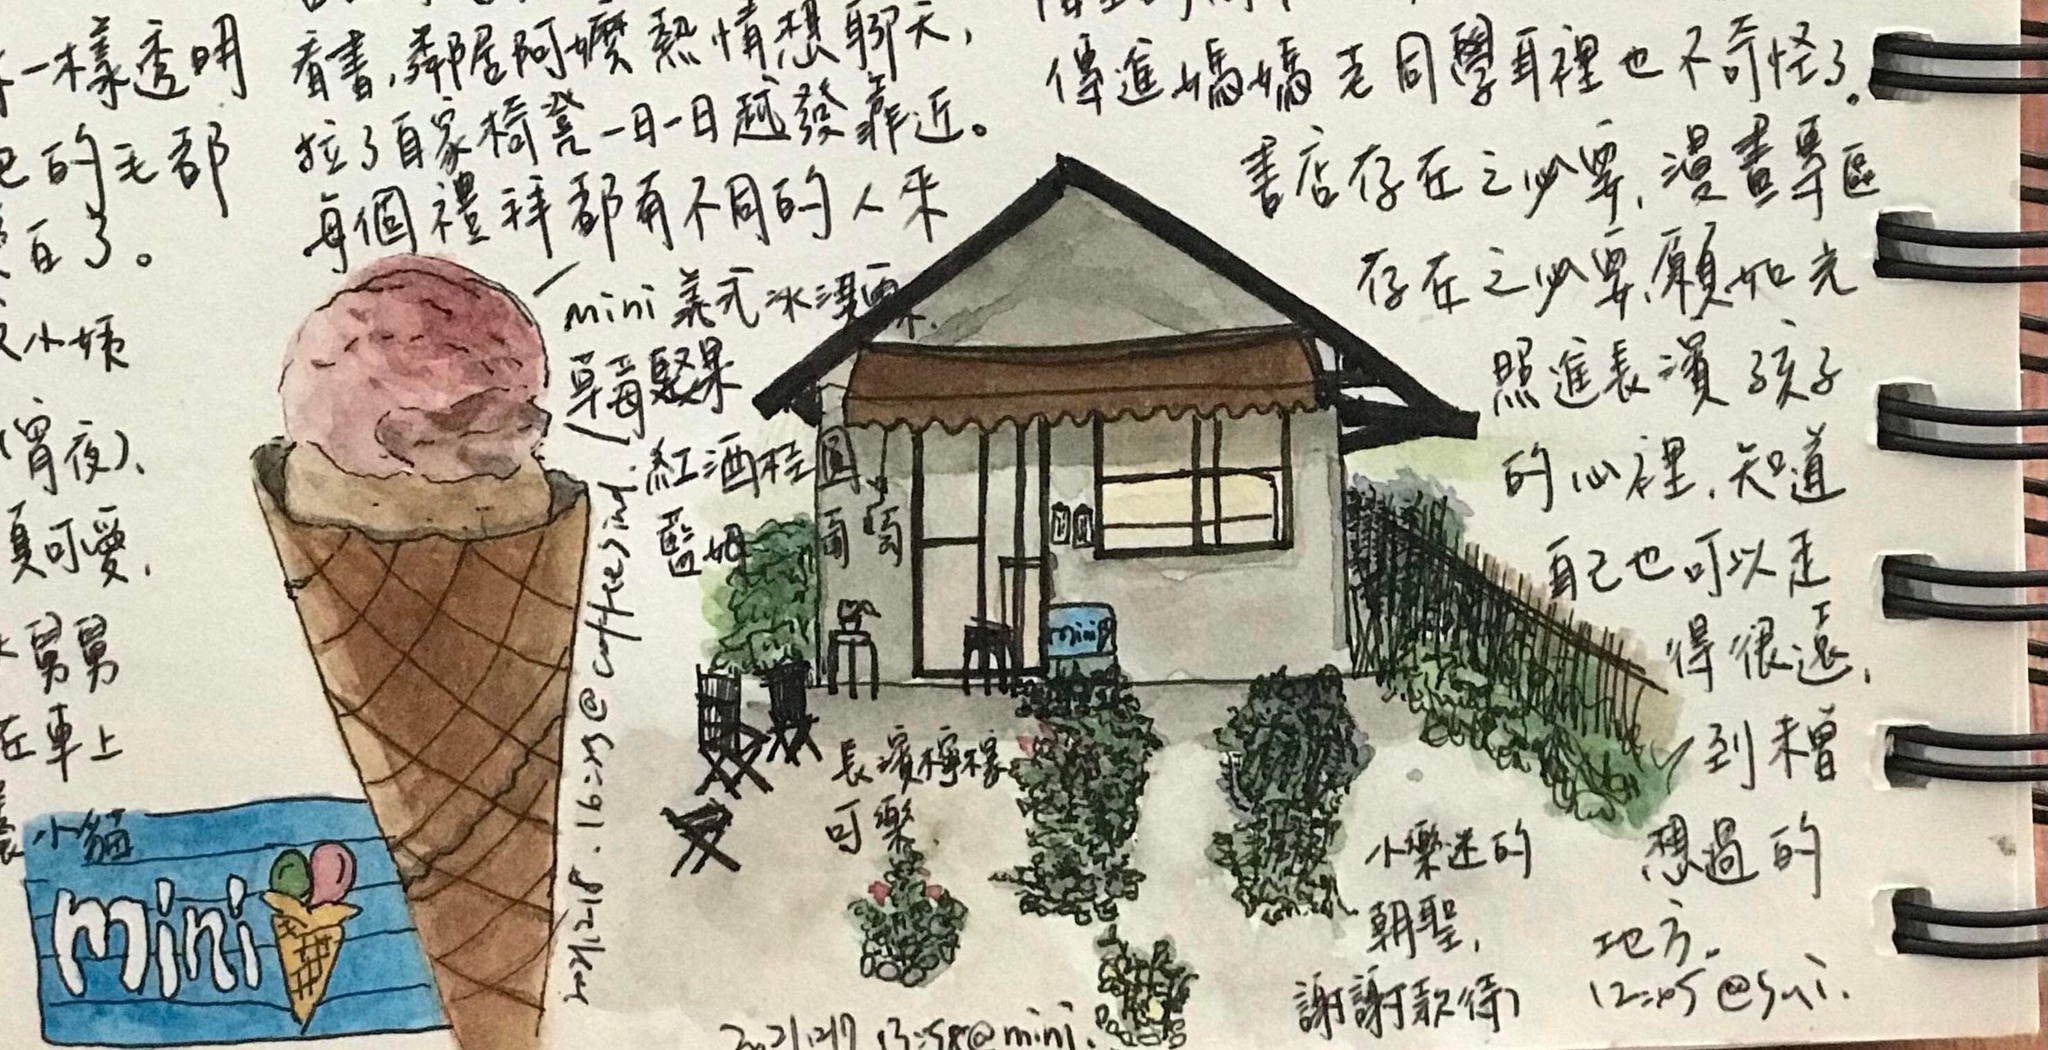 一樣透明
的毛都
白了。
小姨
(宵夜)、
真可愛,
舅舅
在車上
小貓
mini
看書,鄰居阿嬤熱情想聊天,
拉了自家椅凳一日一日越發靠近。
每個禮拜都有不同的人來
mini義式冰淇淋
草莓堅果
紅酒桂圓
藍姆葡萄
@coffeesind.
mini
長濱檸檬
可樂
13:58@mini.
傳進媽媽老同學耳裡也不奇怪了。
書店存在之必要,漫畫專區
存在之必要,願如光
照進長濱孩子
的心裡,知道
自己也可以走
得很遠,
到未曾
想過的
地方。
12:45@Sui.
小樂迷的
朝聖,
謝謝款待